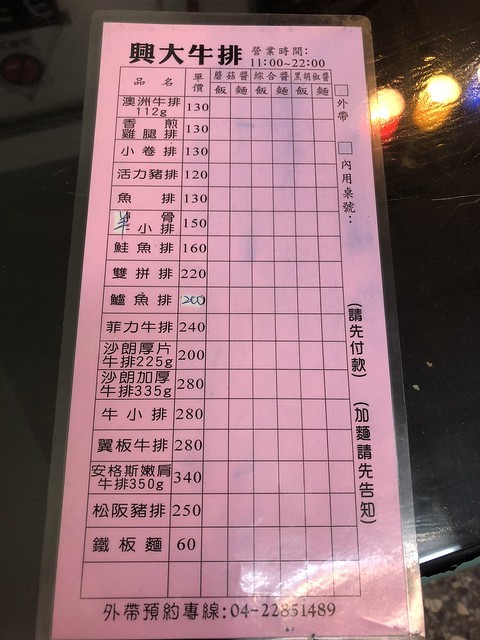 興大牛排 營業時間：
11:00~22:00
品名 單價 蘑菇醬 綜合醬 黑胡椒醬
飯 麵 飯 麵 飯 麵
澳洲牛排 112g 130
香煎雞腿排 130
小卷排 130
活力豬排 120
魚排 130
羊骨小排 150
鮭魚排 160
雙拼排 220
鱸魚排 200
菲力牛排 240
沙朗厚片牛排225g 200
沙朗加厚牛排335g 280
牛小排 280
翼板牛排 280
安格斯嫩肩牛排350g 340
松阪豬排 250
鐵板麵 60
□外帶
□內用桌號：
(請先付款)
(加麵請先告知)
外帶預約專線:04-22851489